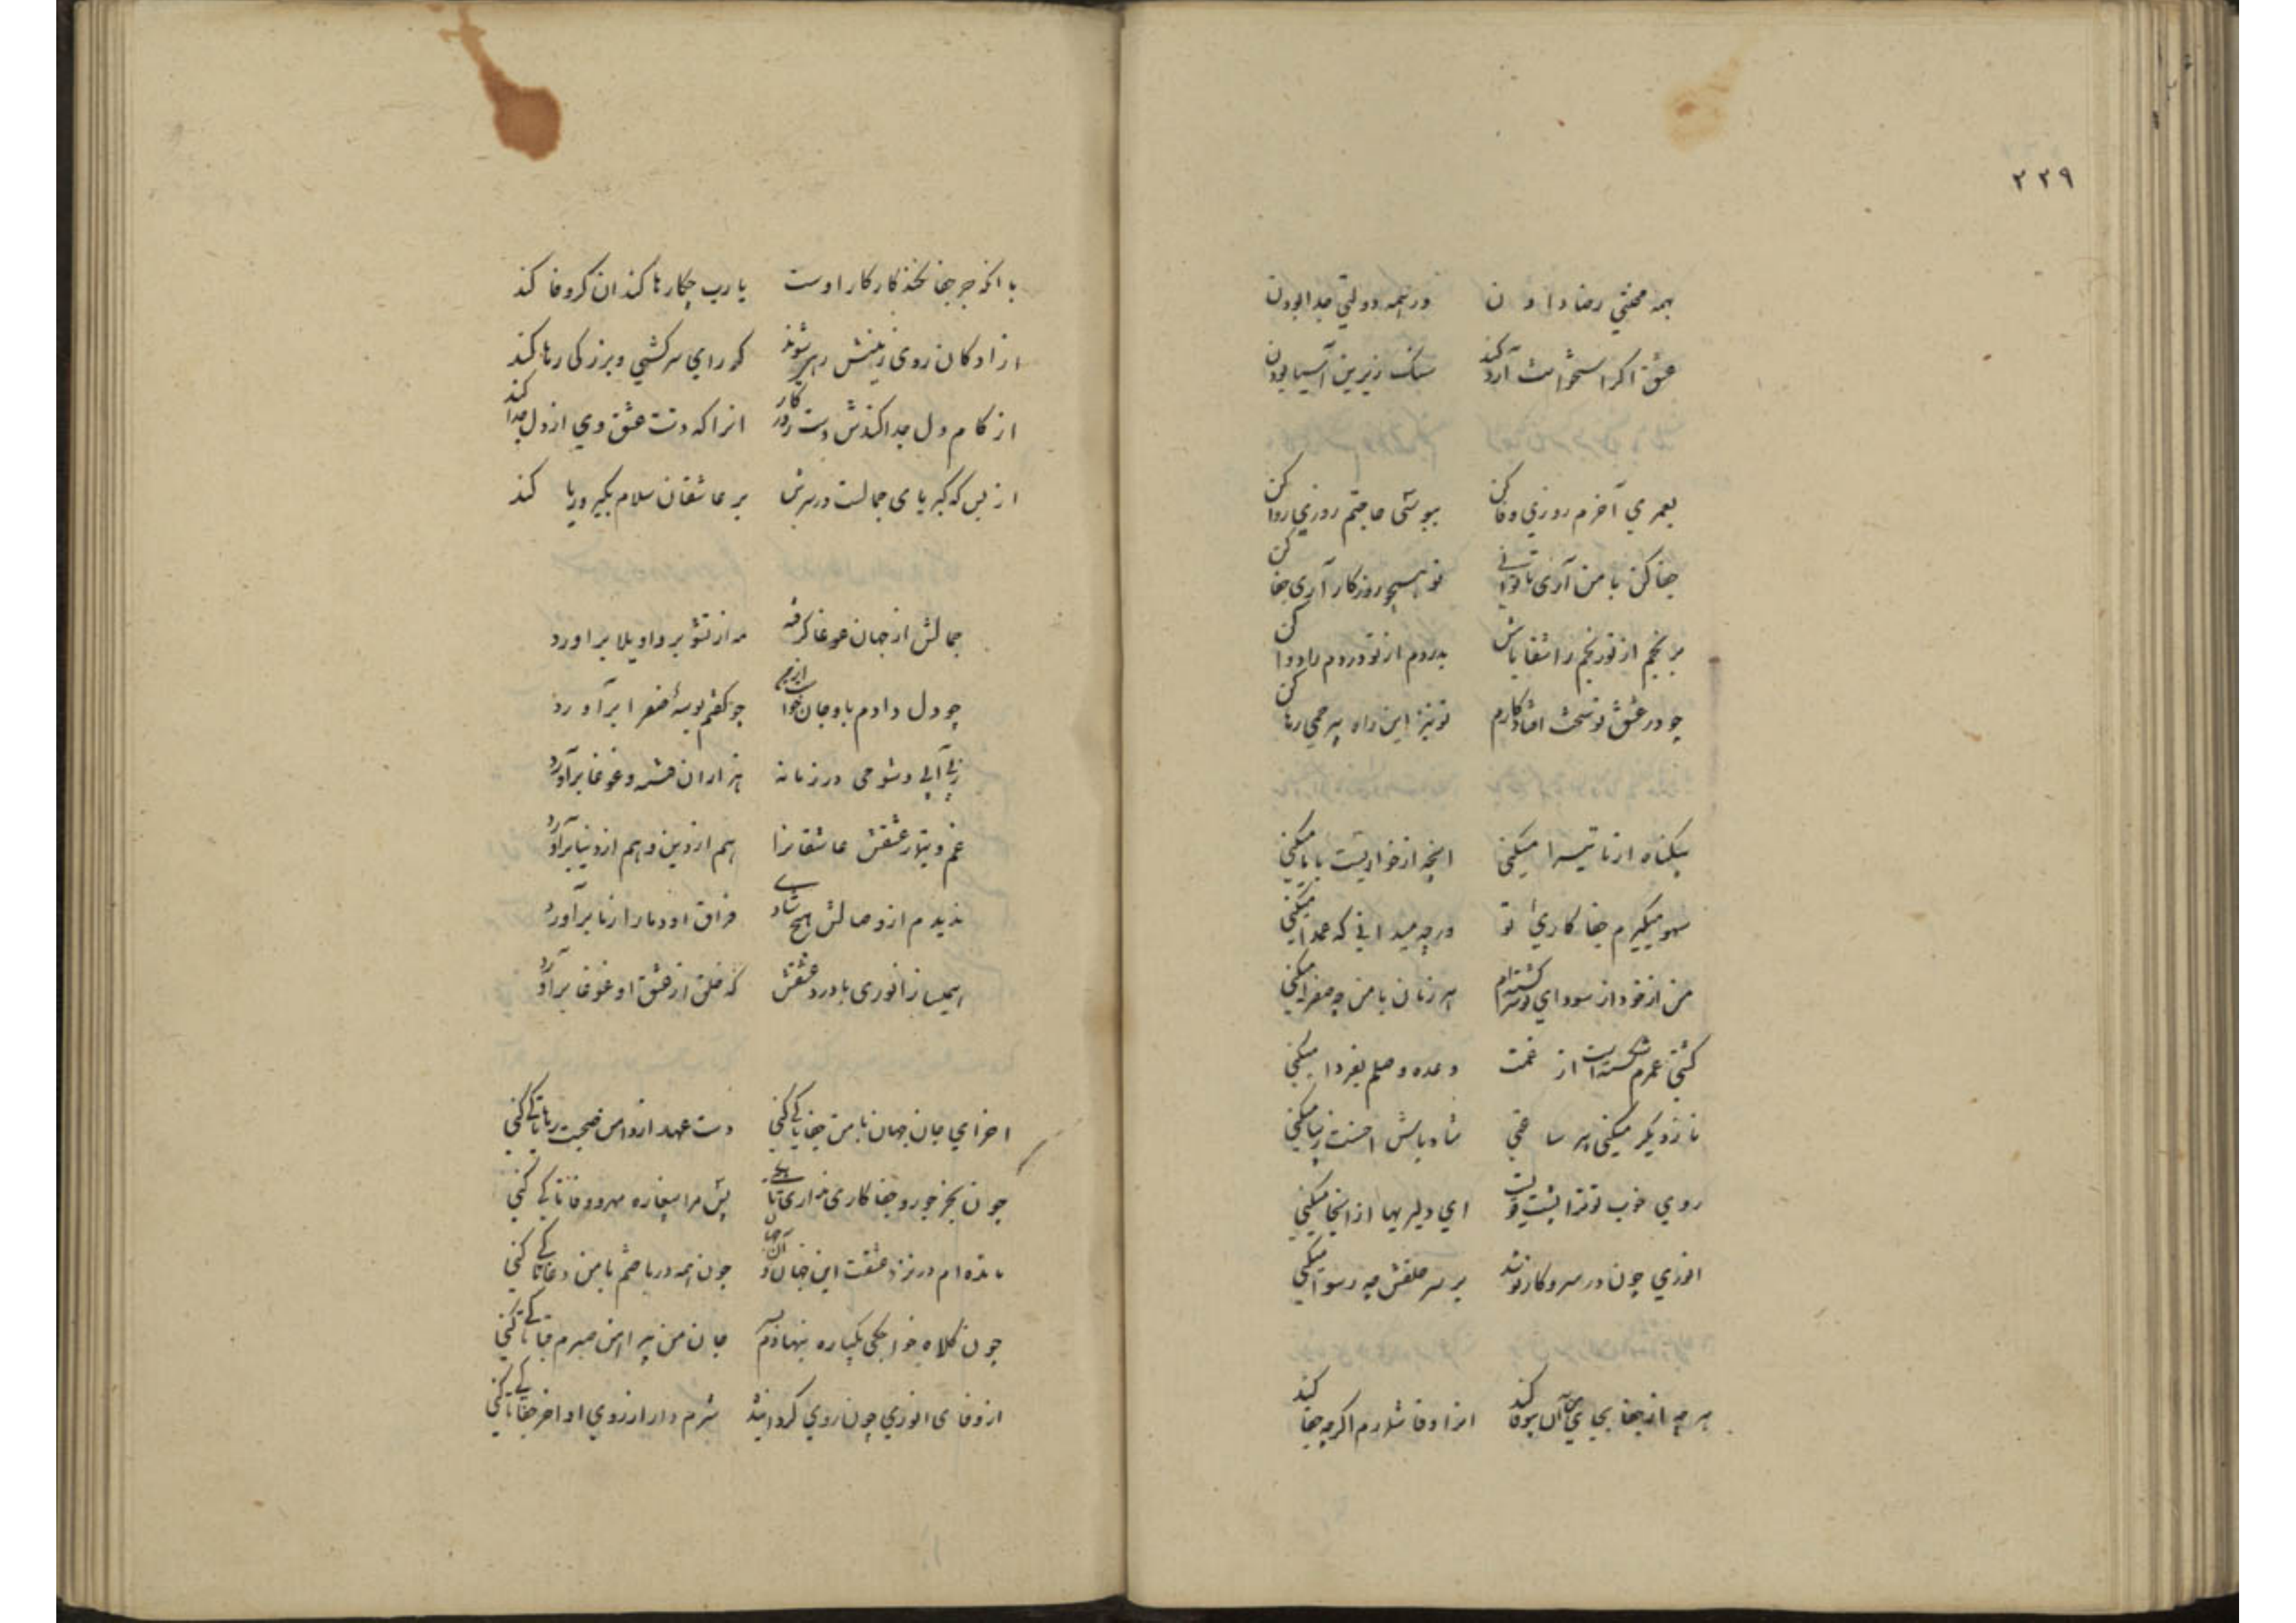 ۲۳۹
بهمه محنتی رضا دادن در همه دولتی جدا بودن
عشق اگر استخوانت آرد کند سنگ زیرین آسیا بودن
بعمری آخرم روزی وفا کن ببوسی حاجتم روزی روا کن
جفا کن با من آری تا توانی تو همچو روزگار آری جفا کن
برنجم از تو رنجم را شفا باش بدردم از تو دردم را دوا کن
چو در عشق تو سخت افتاد کارم تو نیز این راه بیرحمی رها کن
بیگناه از ما تبرا میکنی آنچه از خواریست با ما میکنی
سهو میگیرم جفا کاری تو ورچه میدانی که عمدا میکنی
من از خود از سودای تو سرگشته‌ام هر زمان با من چه صفرا میکنی
کشتی عمرم شکسته است از غمت وعده وصلم بفردا میکنی
ناز دیگر میکنی هر ساعتی شاد باش احسنت زیبا میکنی
روی خوب تو ترا پشت قویست ای دلیریها از آنجا میکنی
انوری چون در سر و کار تو شد بر سر خلقش چه رسوا میکنی
هرچه از جفا بجای من آن بیوفا کند آنرا وفا شمارم اگرچه جفا کند
با آنکه جز جفا نکند کار کار اوست یارب چکارها کند ار زانکه وفا کند
ازادگان روی زمینش رهی شوند گو رای سرکشی و بزرگی رها کند
از کام دل جدا کندش دست روزگار آنرا که دست عشق وی از دل جدا کند
از بس که کبریای جمالست در سرش بر عاشقان سلام بکبر و ریا کند
جمالش از جهان غوغا گرفته مه از تشویر واویلا برآورد
چو دل دادم باو جان خواست از من چو گفتم بوسه صفرا برآورد
ز بی آبی و شوخی در زمانه هزاران فتنه و غوغا برآورد
غم و تیمار عشقش عاشقانرا هم از دین و هم از دنیا برآورد
ندیدم از وصالش هیچ شادی فراق او دمار از ما برآورد
همیساز انوری با درد عشقش که خلق از عشق او غوغا برآورد
آخر ای جان جهان با من جفا تا کی کنی دست عهد از دامن صحبت رها تا کی کنی
چون بجز جور و جفا کاری نداری تا بکی پس مرا بیغاره مهر و وفا تا کی کنی
مانده‌ام در نرد عشقت این جهان و آن جهان چون همه درباختم با من دغا تا کی کنی
چون کلاه خواجگی یکباره بنهادم ز سر جان من پیراهن صبرم قبا تا کی کنی
از وفای انوری چون روی گردانیدند شرم دار از روی او آخر جفا تا کی کنی